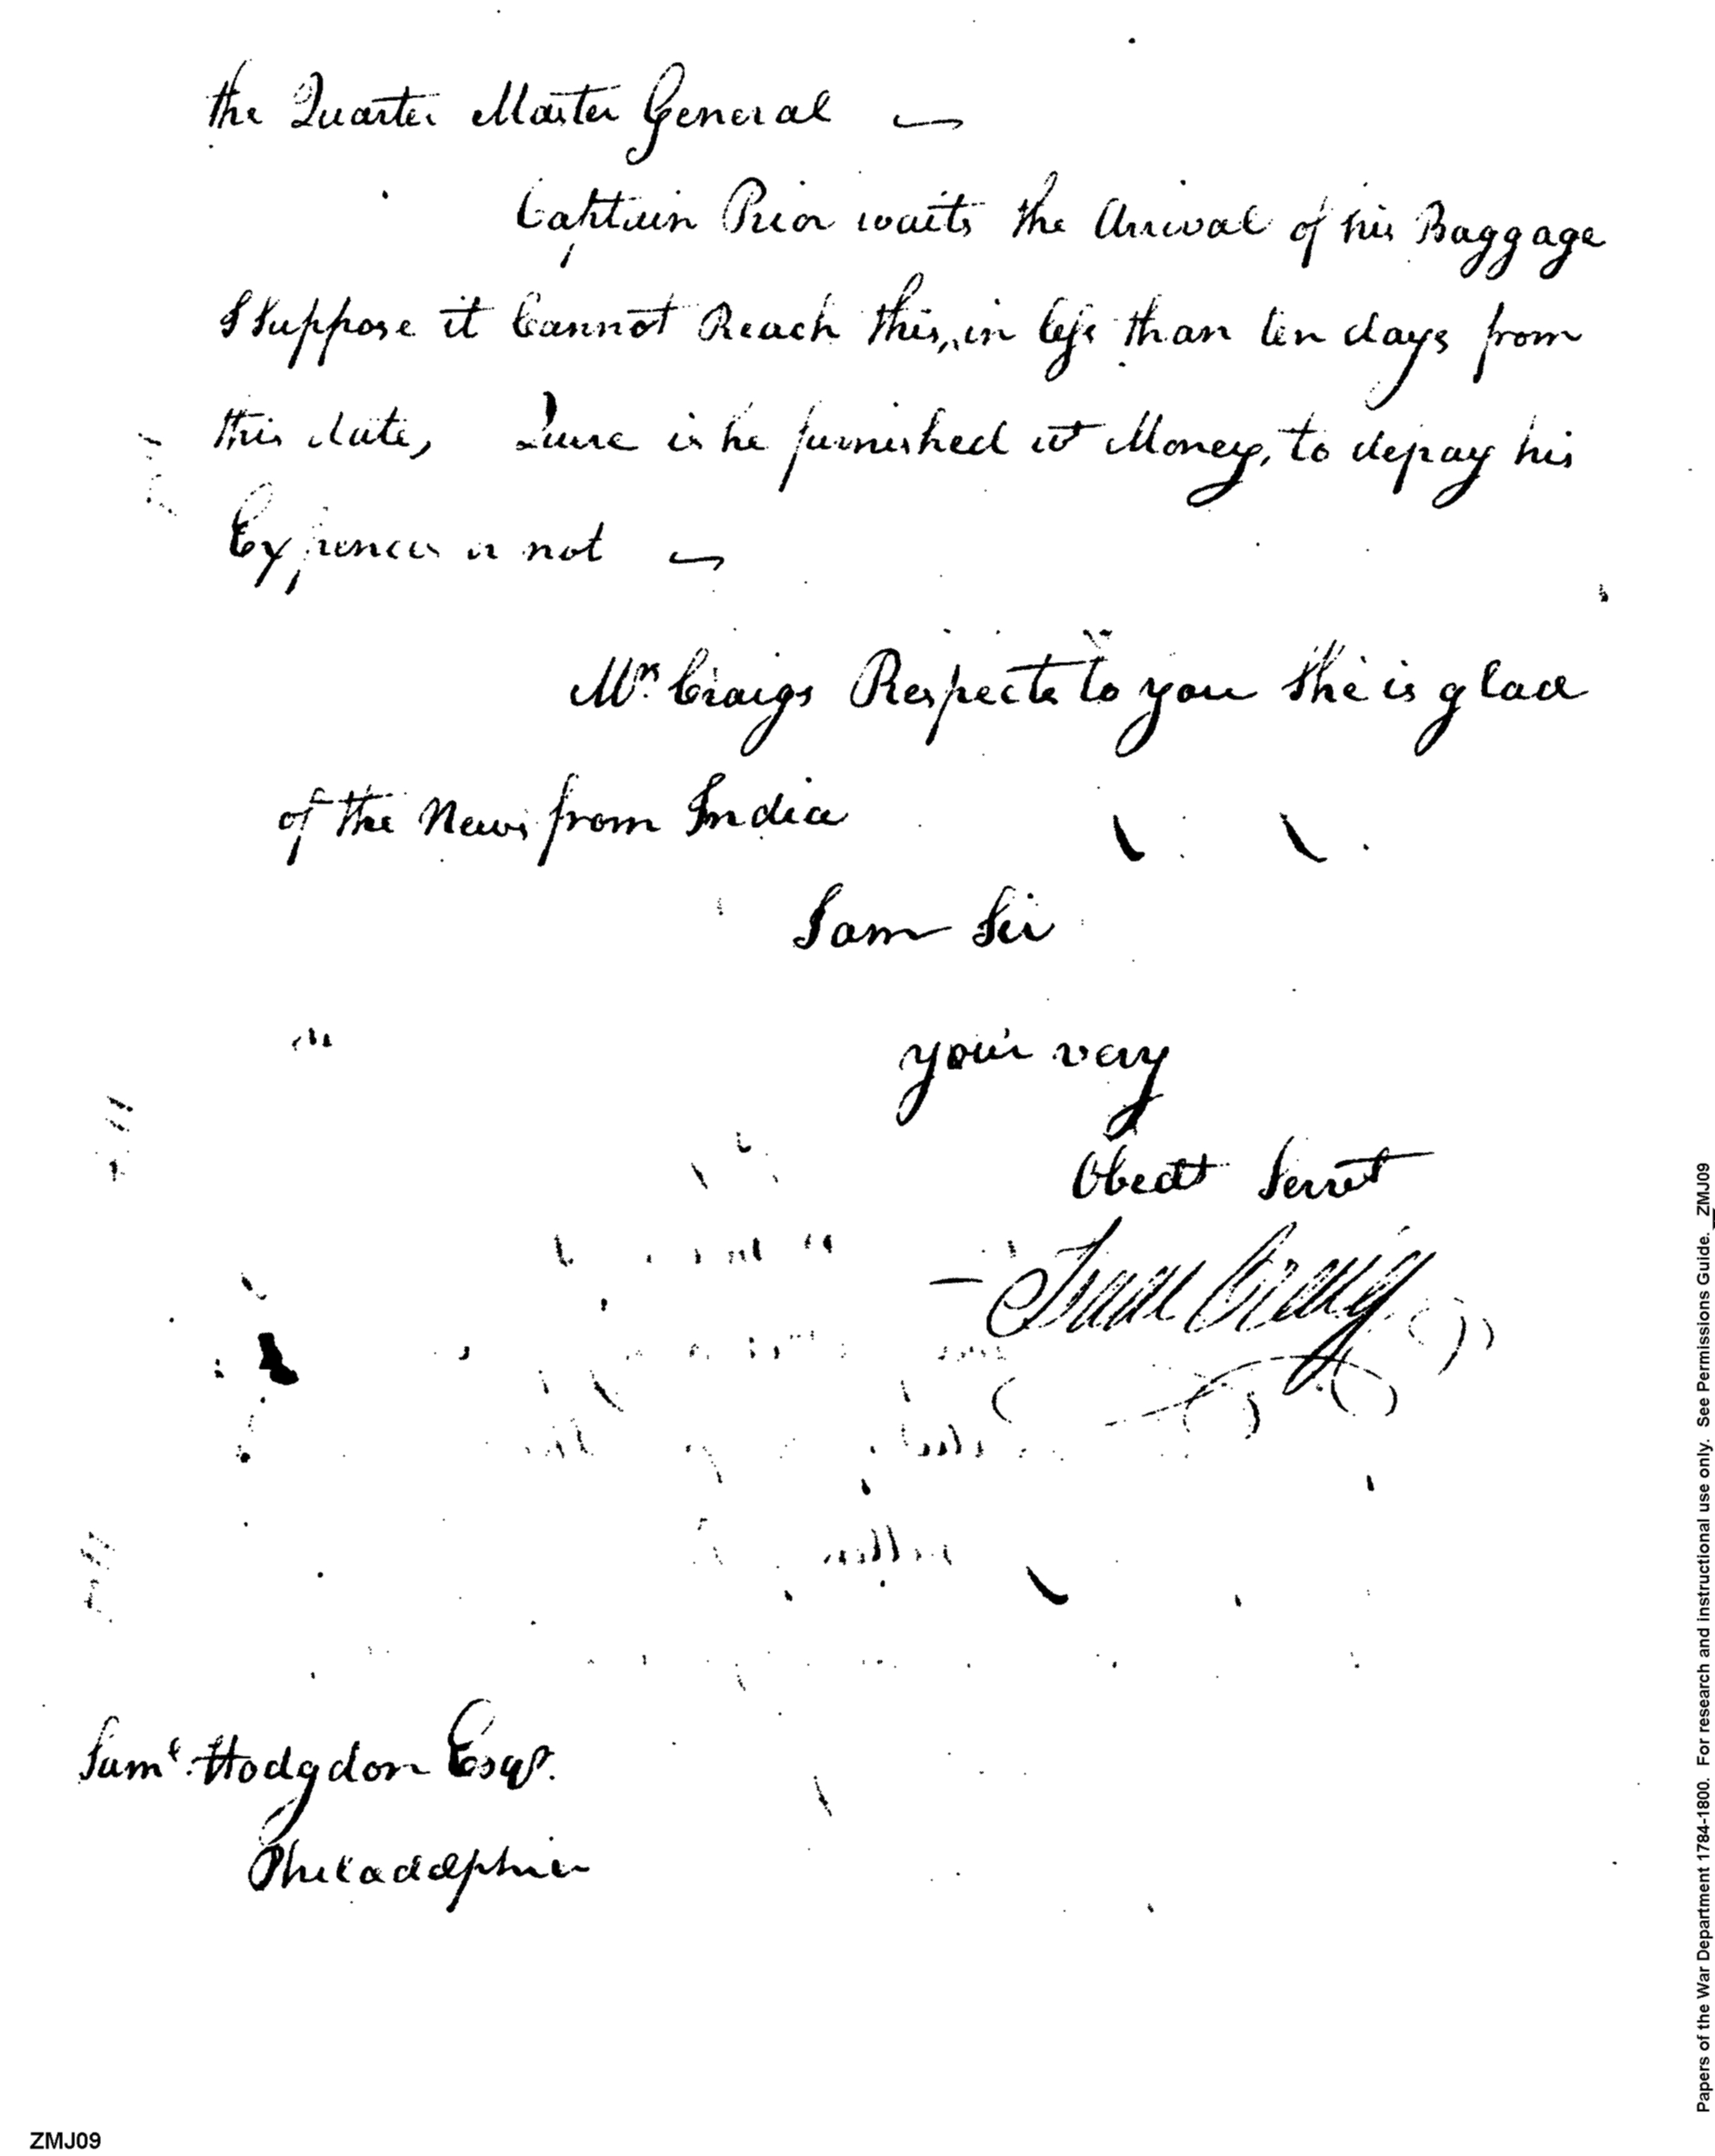 the Quarter Master General —
Captain Prior waits the Arrival of his Baggage
I Suppose it Cannot Reach this, in less than ten days from
this date, Quere is he furnished wt Money, to depay his
Expences or not —
Mrs. Craigs Respects to you She is glad
of the News from India
I am Sir
your very
Obedt Servt
— Isaac Craig
Saml. Hodgdon Esqr.
Philadelphia
Papers of the War Department 1784-1800. For research and instructional use only. See Permissions Guide. ZMJ09
ZMJ09